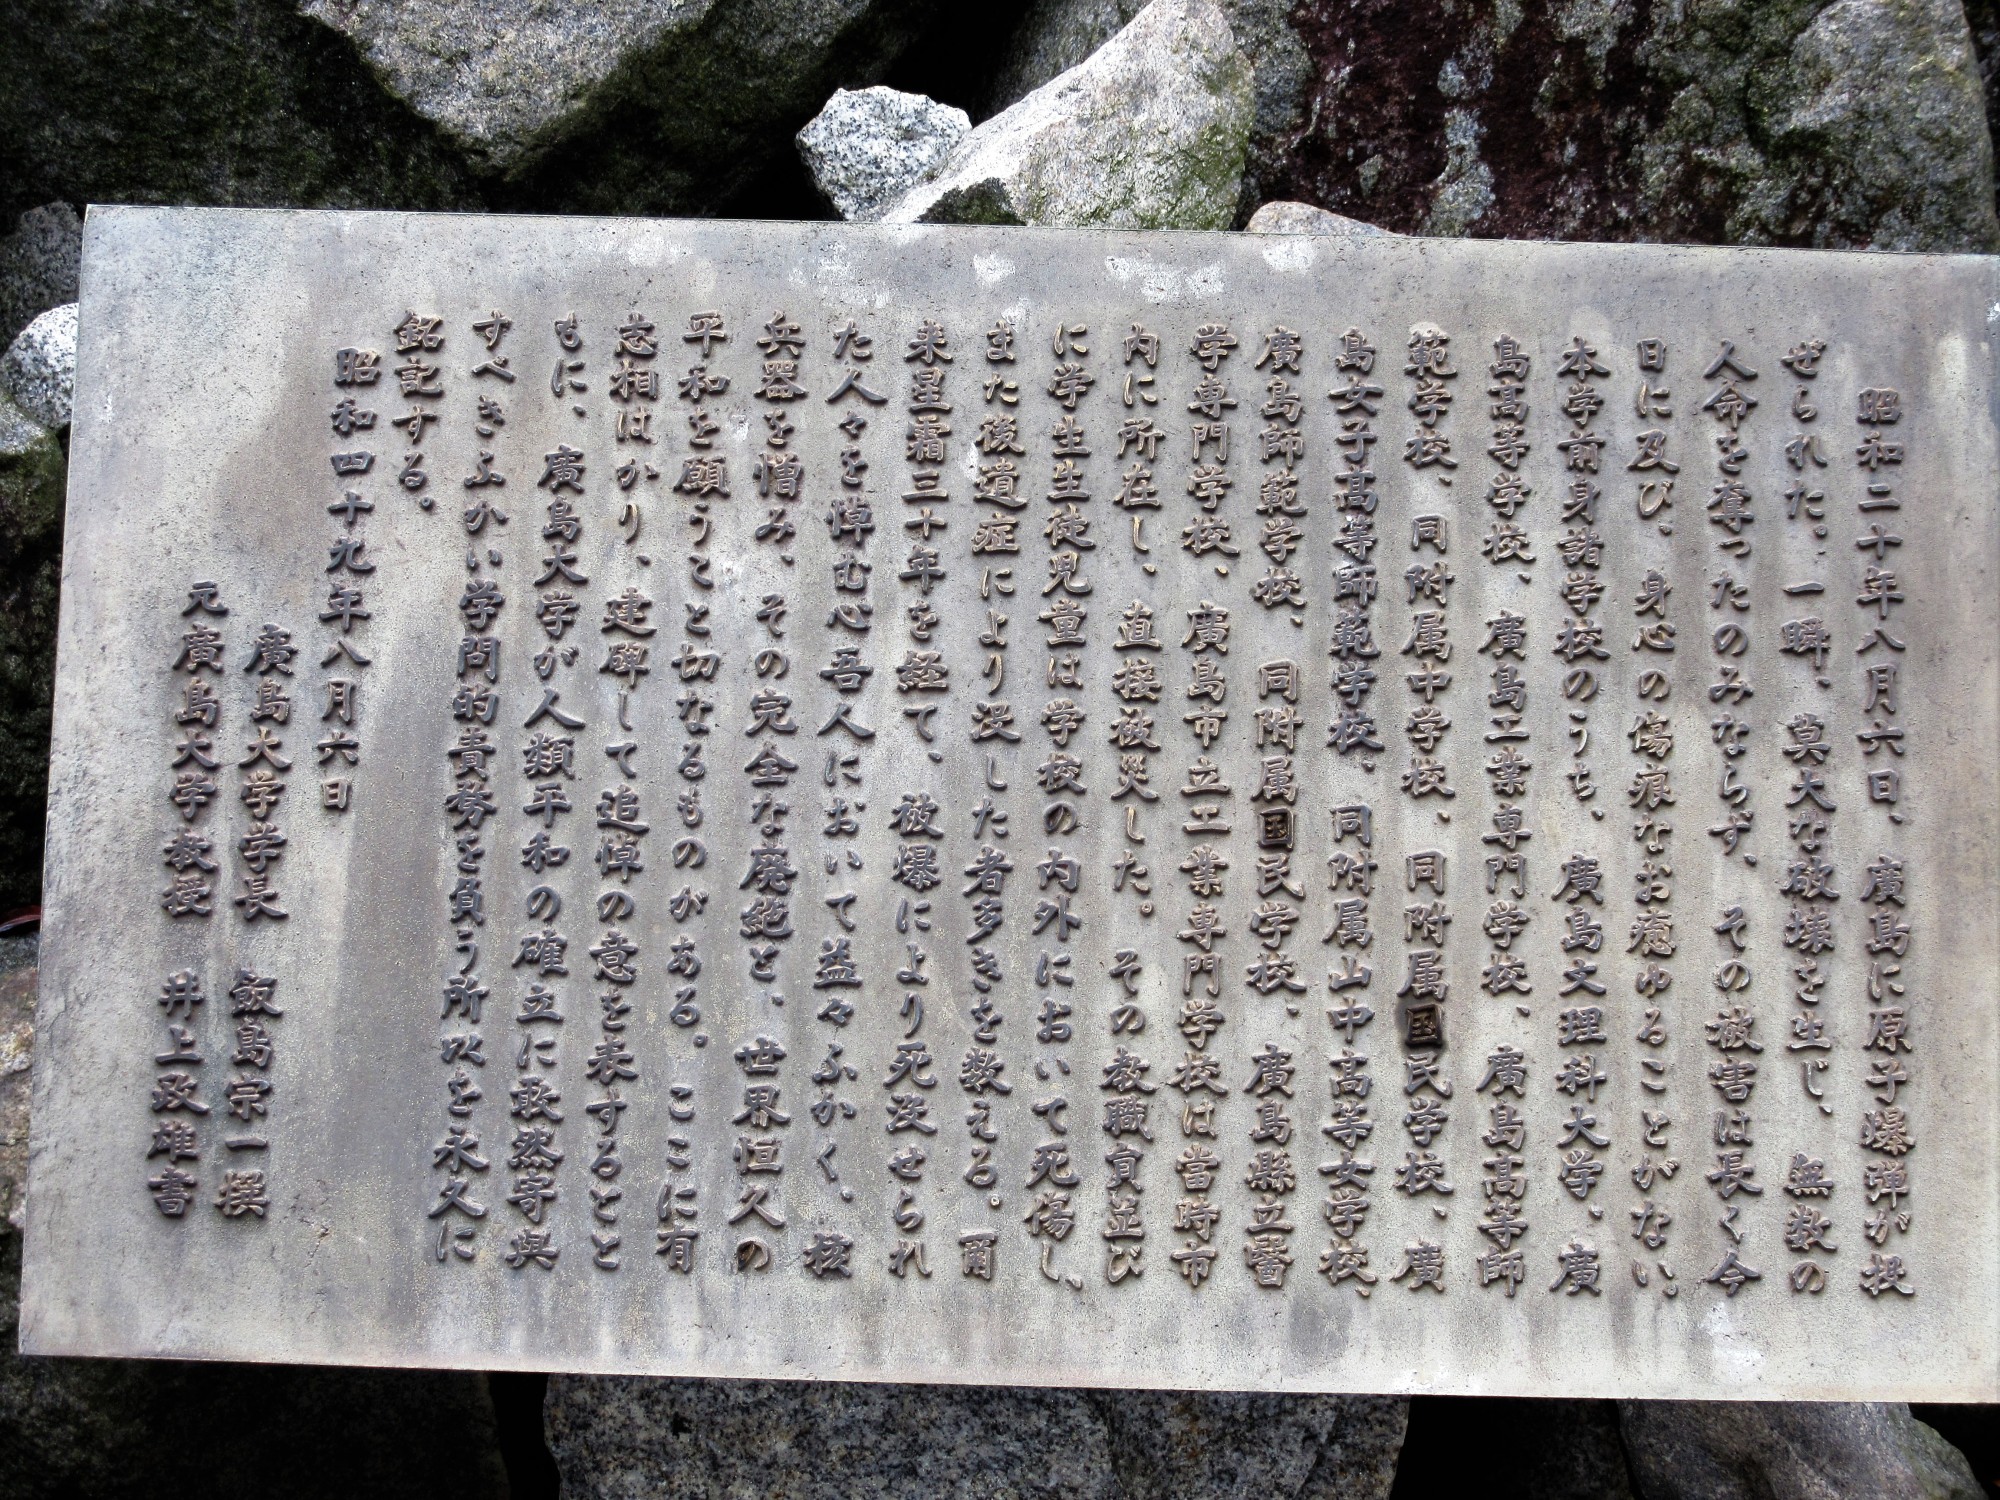 昭和二十年八月六日、廣島に原子爆弾が投
ぜられた。一瞬、莫大な破壊を生じ、無数の
人命を奪ったのみならず、その被害は長く今
日に及び、身心の傷痕なお癒ゆることがない。
本学前身諸学校のうち、廣島文理科大学、廣
島高等学校、廣島工業専門学校、廣島高等師
範学校、同附属中学校、同附属国民学校、廣
島女子高等師範学校、同附属山中高等女学校、
廣島師範学校、同附属国民学校、廣島縣立醫
学専門学校、廣島市立工業専門学校は當時市
内に所在し、直接被災した。その教職員並び
に学生生徒児童は学校の内外において死傷し、
また後遺症により没した者多きを数える。爾
来星霜三十年を経て、被爆により死没せられ
た人々を悼む心吾人において益々ふかく、核
兵器を憎み、その完全な廃絶と、世界恒久の
平和を願うこと切なるものがある。ここに有
志相はかり、建碑して追悼の意を表するとと
もに、廣島大学が人類平和の確立に敢然寄與
すべきふかい学問的責務を負う所以を永久に
銘記する。
昭和四十九年八月六日
廣島大学学長 飯島宗一撰
元廣島大学教授 井上政雄書